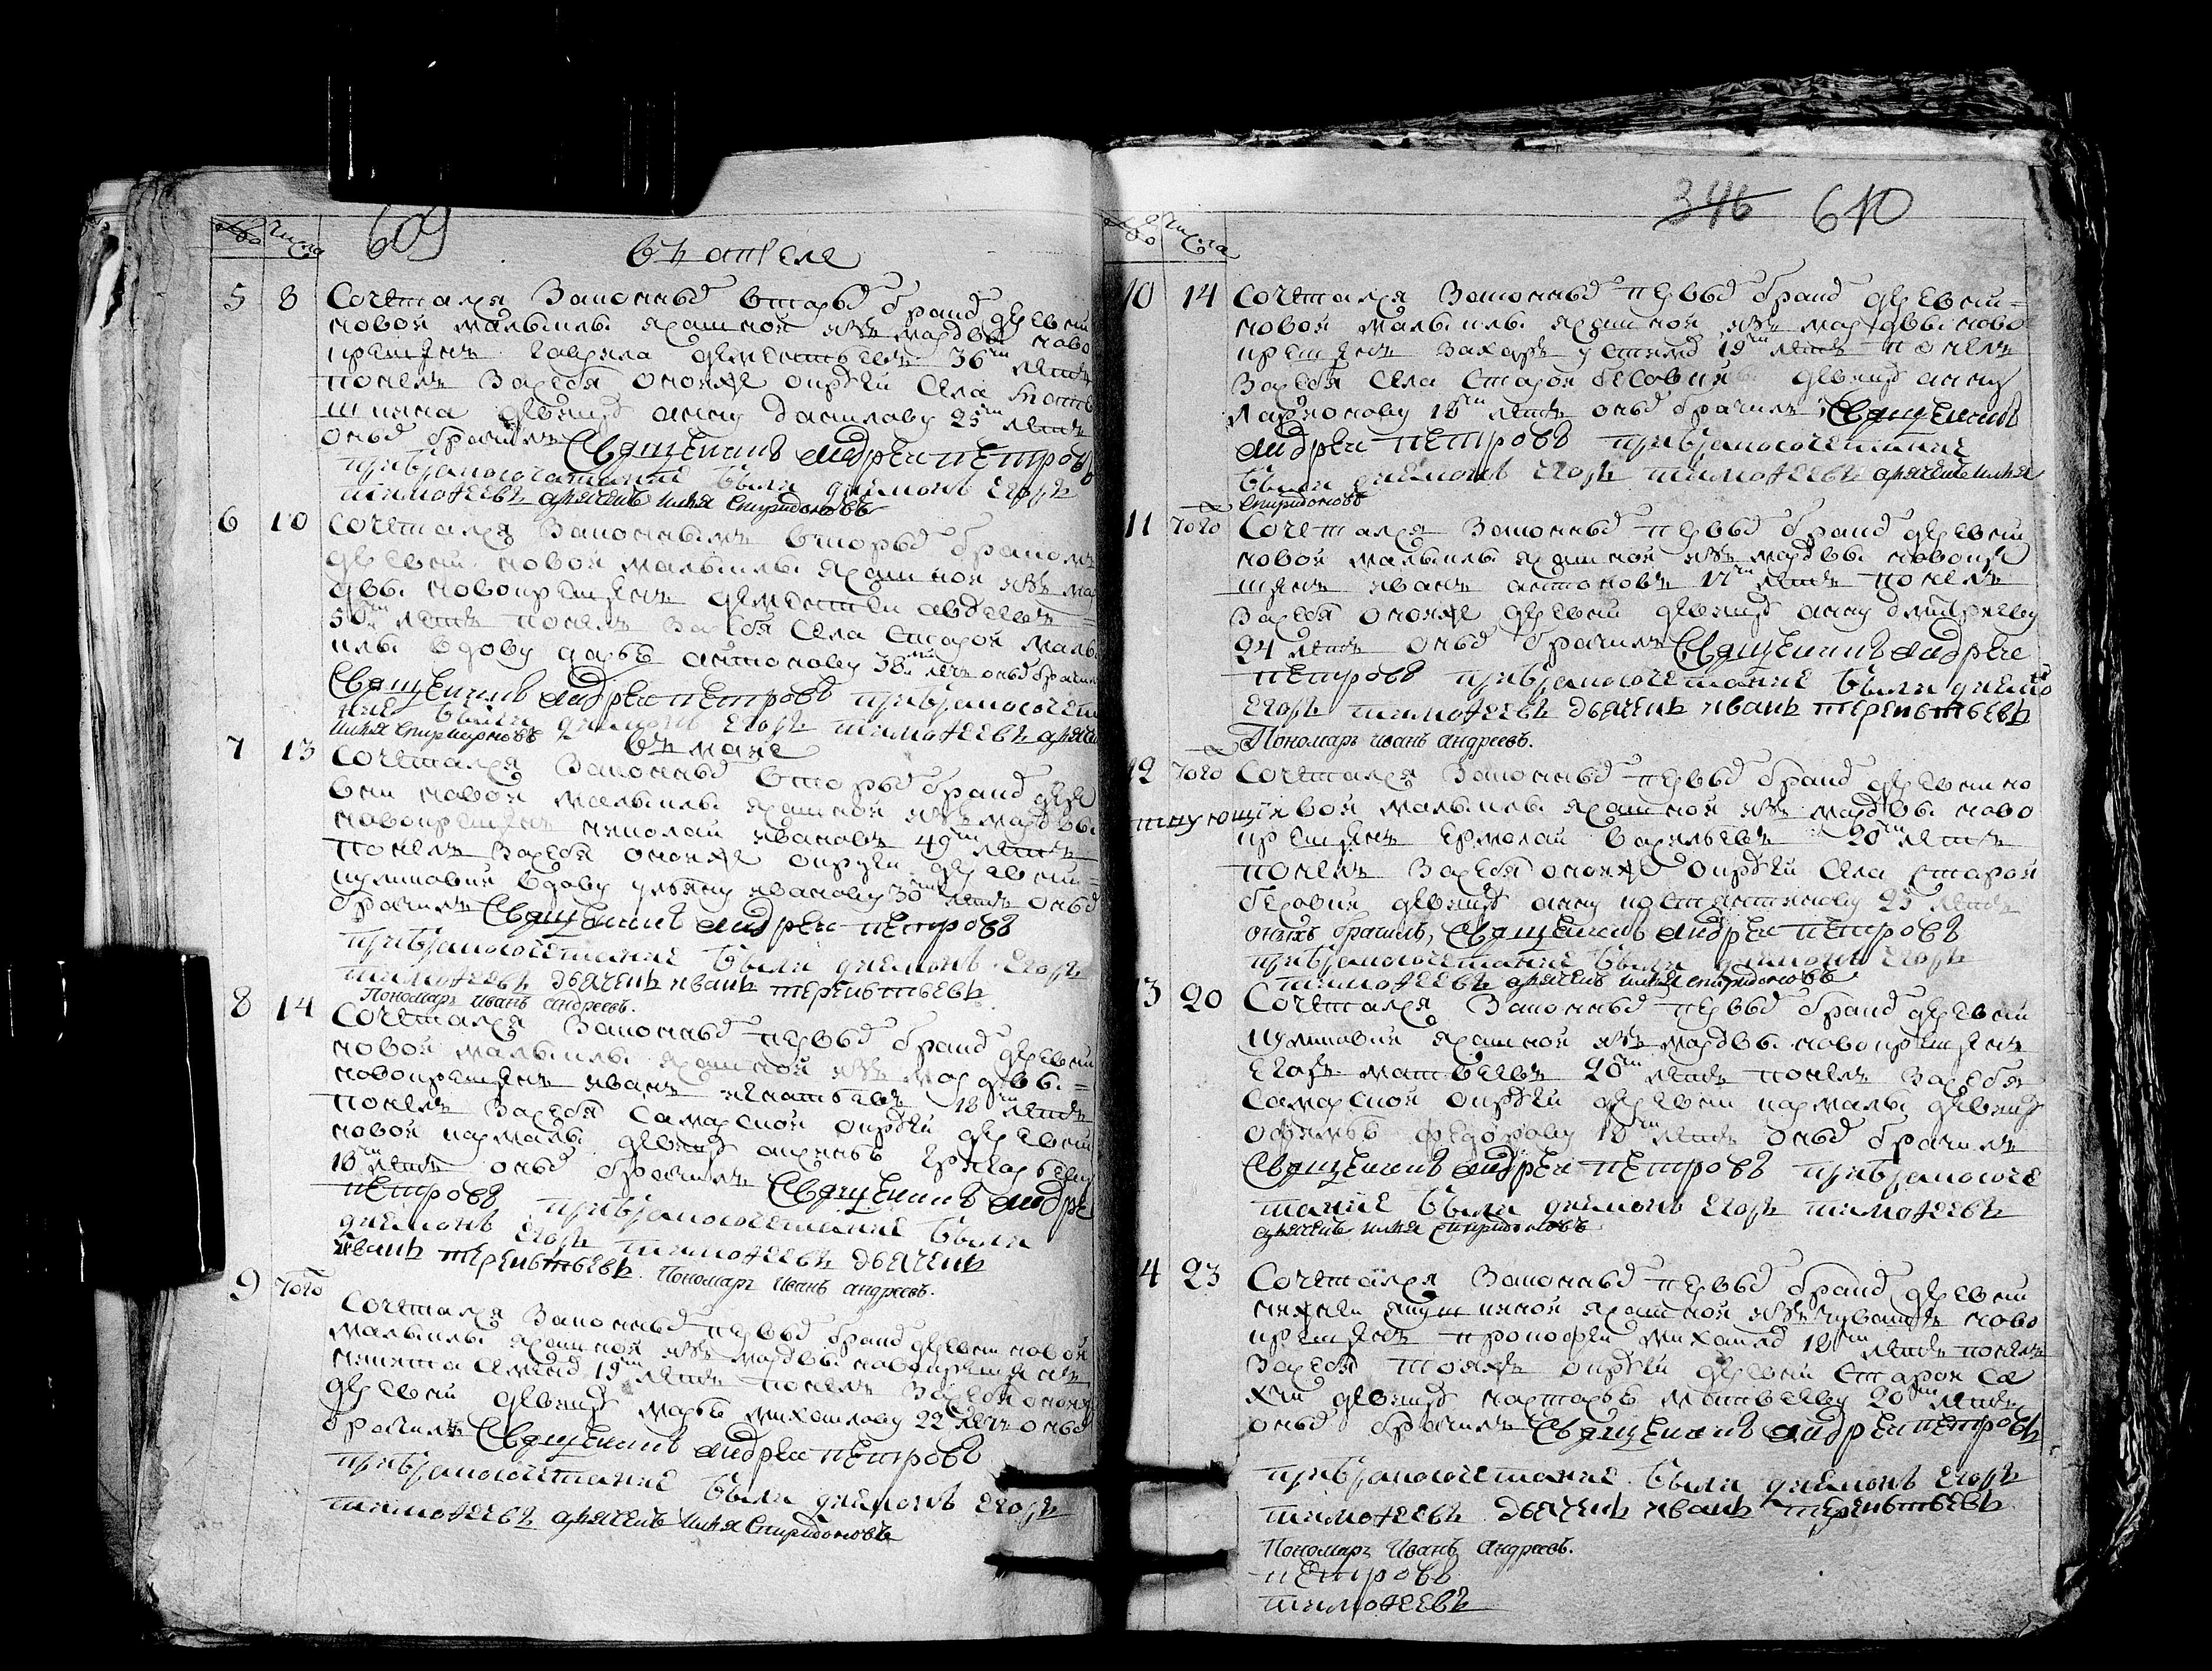 № Числа
609
въ апреле
5 8 Сочетался Законныъ вторыъ бракъ деревни
новой малыклы ясашной изъ мордвы ново
крещенъ гаврила дементьевъ 36ти летъ
понелъ засебя оноже округи села
девицу анну данилову 25ти летъ
оныъ брачилъ Священникъ андреи петровъ
присемъ сочетание были диаконъ егоръ
тимофеевъ дьяченъ илья Спиридоновъ
6 10 Сочетался Законнымъ вторыъ бракомъ
деревни новой малыклы ясашной изъ мор
двы новокрещенъ дементеи авдеевъ
50ти летъ понелъ засебя села старой малы
клы вдову дарью антонову 38ми летъ оныъ брачилъ
Священникъ андреи петровъ присемъ сочета
ние были диаконъ егоръ тимофеевъ дьячен
илья Спиридоновъ
въ мае
7 13 Сочетался Законныъ вторыъ бракъ дере
вни новой малыклы ясашной изъ мордвы
новокрещенъ николаи ивановъ 49ти летъ
понелъ засебя оноже округи деревни
куликовки вдову ульяну иванову 30ти летъ оныъ
брачилъ Священникъ андреи петровъ
присемъ сочетание были диаконъ егоръ
тимофеевъ дьяченъ иванъ терентьевъ
Пономарь Иванъ Андреевъ.
8 14 Сочетался Законныъ первыъ бракъ деревни
новой малыклы ясашной изъ мордвы
новокрещенъ иванъ игнатьевъ 18ти летъ
понелъ засебя самарской округи деревни
новой кармалы девицу
18ти летъ оныъ брачилъ Священникъ андре
петровъ присемъ сочетание были
диаконъ егоръ тимофеевъ дьяченъ
иванъ терентьевъ. Пономарь Иванъ Андреевъ.
9 того Сочетался Законныъ первыъ бракъ деревни новой
малыклы ясашной изъ мордвы новокрещенъ
никита 19ти летъ понелъ засебя оноже
деревни девицу марью михаилову 22 летъ оныъ
брачилъ Священникъ андреи петровъ
присемъ сочетание были диаконъ егоръ
тимофеевъ дьяченъ илья Спиридоновъ
346 610
№ Числа
10 14 Сочетался Законныъ первыъ бракъ деревни
новой малыклы ясашной изъ мордвы ново
крещенъ захаръ 19ти летъ понелъ
засебя села старой бесовки девицу анну
ларионову 18ти летъ оныъ брачилъ Священникъ
андреи петровъ присемъ сочетание
были диаконъ егоръ тимофеевъ дьяченъ илья
Спиридоновъ
11 того Сочетался Законныъ первыъ бракъ деревни
новой малыклы ясашной изъ мордвы новокре
щенъ иванъ антоновъ 17ти летъ понелъ
засебя оноже деревни девицу анну дмитриеву
24 летъ оныъ брачилъ Священникъ андреи
петровъ присемъ сочетание были диако
егоръ тимофеевъ дьяченъ иванъ терентьевъ
Пономарь Иванъ Андреевъ.
12 того Сочетался Законныъ первыъ бракъ деревни но
вой малыклы ясашной изъ мордвы ново
крещенъ ермолаи васильевъ 20ти летъ
понелъ засебя оноже округи села старой
бесовки девицу анну константинову 25 летъ
оныхъ брачилъ, Священникъ андреи петровъ
присемъ сочетание были диаконъ егоръ
тимофеевъ дьяченъ илья спиридоновъ
13 20 Сочетался Законныъ первыъ бракъ деревни
куликовки ясашной изъ мордвы новокрещенъ
егоръ матвеевъ 20ти летъ понелъ засебя
самарской округи деревни кармалы девицу
офимью федорову 18ти летъ оныъ брачилъ
Священникъ андреи петровъ присемъ соче
тание были диаконъ егоръ тимофеевъ
дьяченъ илья спиридоновъ
14 23 Сочетался Законныъ первыъ бракъ деревни
нижней якушкиной ясашной изъ чувашъ ново
крещенъ прокофеи 18ти летъ понелъ
засебя тояжъ округи деревни старой са
девицу матвееву 20ти летъ
оныъ брачилъ Священникъ андреи петровъ
присемъ сочетание были диаконъ егоръ
тимофеевъ дьяченъ иванъ терентьевъ
Пономарь Иванъ Андреевъ.
петровъ
тимофеевъ